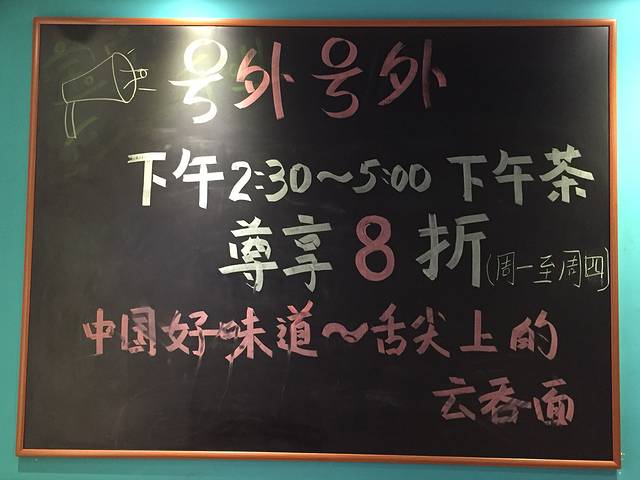 号外号外
下午2:30~5:00 下午茶
尊享8折(周一至周四)
中国好味道~舌尖上的
云吞面